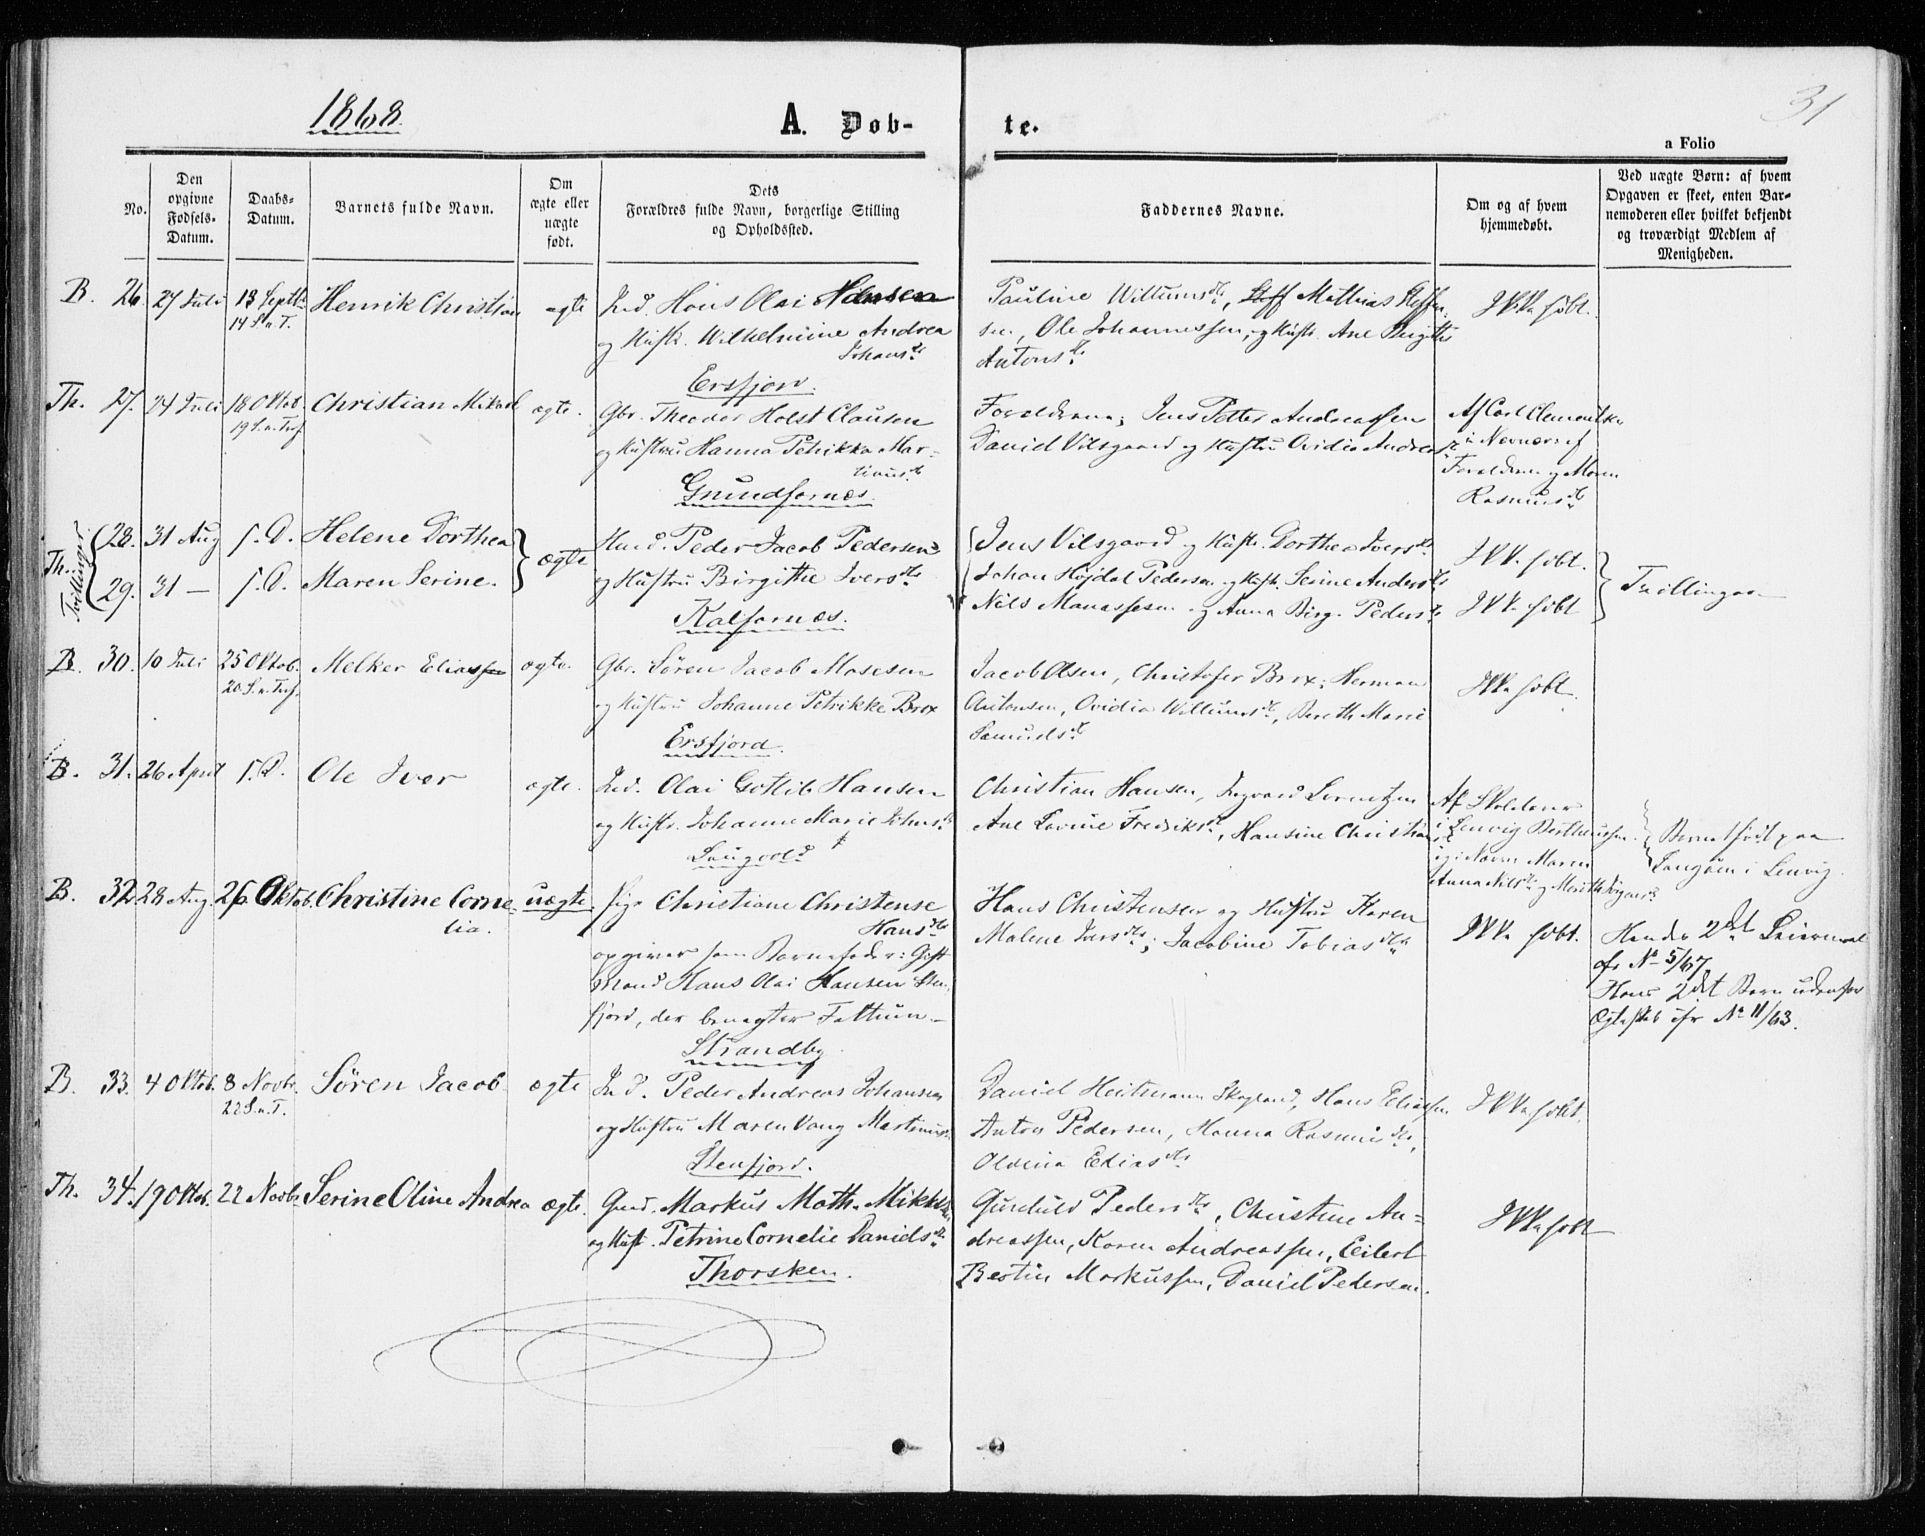 1868.
A. Døb-
te.
31
a Folio
No.
Den
opgivne
Fødsels-
Datum.
Daabs-
Datum.
Barnets fulde Navn.
Om
ægte eller
uægte
født.
Dets
Forældres fulde Navn, borgerlige Stilling
og Opholdssted.
Faddernes Navne.
Om og af hvem
hjemmedøbt.
Ved uægte Børn: af hvem
Opgaven er skeet, enten Bar-
nemoderen eller hvilket bekjendt
og troværdigt Medlem af
Menigheden.
B. 26. 27 Juli 13 Septb.
14 S. e. T.
Henrik Christian
ægte
Ind. Hans Olai Hansen
og Hustr. Wilhelmine Andrea
Johansdtr
Ersfjord.
Pauline Willumsdtr, Mathias Steffen-
sen, Ole Johannessen, og Hustr. Ane Birgitte
Antonsdtr
Ikke hdbt.
Th. 27. 24 Juli 18 Oktob.
19 S. e. Tref.
Christian Mikael
ægte.
Gbr. Theodor Holst Clausen
og Hustru Hanna Petrikka Mar-
tinusdtr
Grundfarnæs.
Forældrene; Jens Petter Andreassen
Daniel Vilsgaard og Hustru Ovidia Andreasdtr
Af Carl Clementsen
i Nærværs af
Forældrene og Maren
Rasmusdtr
Th. Tvillinger
28. 31 Aug s. D. Helene Dorthea
29. 31 — s. D. Maren Serine.
ægte
Husmd. Peder Jacob Pedersen
og Hustru Birgithe Iversdtr
Kalfarnæs.
Jens Vilsgaard og Hustr. Dorthea Iversdtr
Johan Højdal Pedersen og Hust. Serine Andersdtr
Nils Manassesen og Anna Birg. Pedersdtr
Ikke hdbt.
Ikke hdbt
Tvillinger
B. 30. 10 Juli 25 Oktob.
20 S. e. Tref.
Melker Eliassen
ægte.
Gbr. Søren Jacob Mosesen
og Hustru Johanne Petrikke Brox
Ersfjord.
Jacob Olsen, Christofer Brox, Herman
Antonsen, Ovidia Willumsdtr, Bereth Marie
Samuelsdtr
Ikke hdbt.
B. 31. 26 April s. D. Ole Iver
ægte.
Ind. Olai Gotlib Hansen
og Hustr. Johanne Marie Johnsdtr
Christian Hansen, Ingvard Lorentzen
Ane Lovise Fredriksdtr, Hansine Christiansdtr
Af Skolelærer
i Lenvig Bertheussen
Barnet født paa
Langøen i Lenvig.
B. 32 28 Aug. 25 Oktob. Christine Corne-
lia.
uægte
Pige Christiane Christense
Hansdtr
opgiver som Barnefader: Gift
Mand Hans Olai Hansen Sten-
fjord, der benegter Faktum.—
Strandby.
Hans Christensen og Hustru Karen
Malene Iversdtr; Jacobine Tobiasdtr
Ikke hdbt.
Hendes 2det Leiermaal
cfr No 5/67
Hans 2det Barn udenfor
Ægteskab cfr No 11/63.
B. 33. 4 Oktob. 8 Novbr.
22 S. e. T.
Søren Jacob
ægte
Ind. Peder Andreas Johansen
og Hustru Maren Vang Martinusdtr
Stenfjord.
Daniel Heitmann Skogland, Hans Eliassen
Anton Pedersen, Hanna Rasmusdtr,
Oldina Eliasdtr
Ikke hdbt.
Th. 34. 19 Oktob. 22 Novbr. Serine Oline Andrea
ægte.
Gmd. Markus Math. Mikkelsen
og Hust. Petrine Cornelie Danielsdtr
Thorsken.
Gunhild Pedersdtr, Christine An-
dreassen, Karen Andreassen, Eilert
Bertin Markussen, Daniel Pedersen.
Ikke hdbt